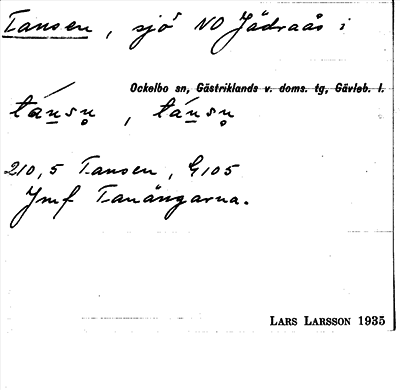 Tansen, sjö NO Jädraås i
Ockelbo sn, Gästriklands v. doms. tg, Gävleb. l.
tánsn̥, tánsn̥
210,5 Tansen, G105
Jmf Tanängarna.
LARS LARSSON 1935